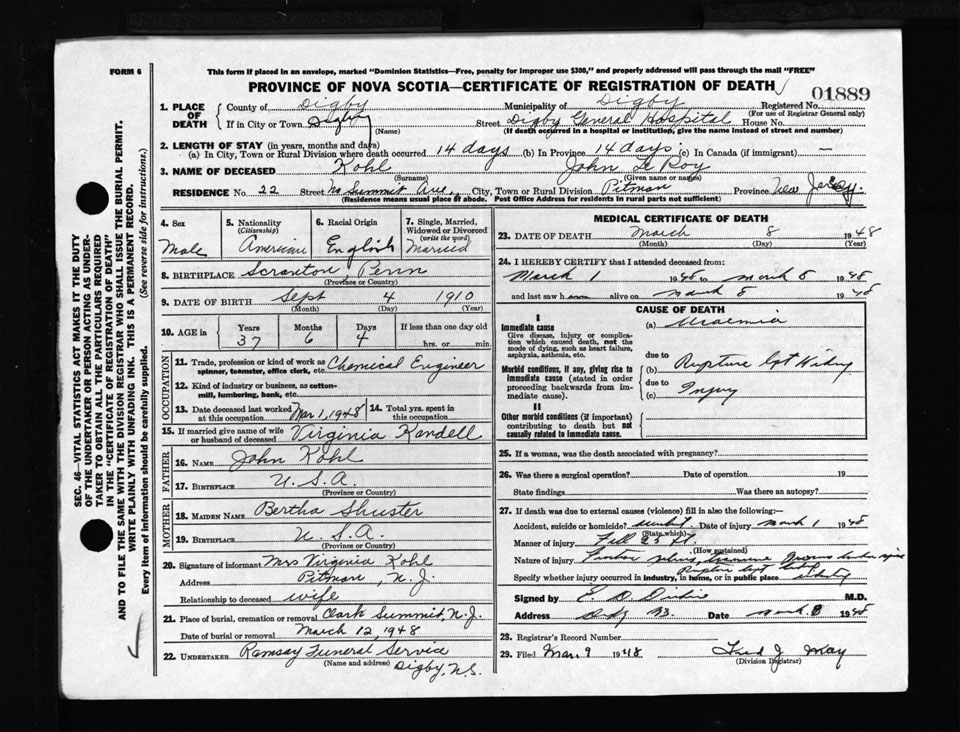 FORM 6
This form if placed in an envelope, marked "Dominion Statistics—Free, penalty for improper use $300," and properly addressed will pass through the mail "FREE"
PROVINCE OF NOVA SCOTIA—CERTIFICATE OF REGISTRATION OF DEATH
01889
Registered No.
(For use of Registrar General only)
1. PLACE OF DEATH
County of Digby Municipality of Digby
If in City or Town Digby Street Digby General Hospital House No.
(Name) (If death occurred in a hospital or institution, give the name instead of street and number)
2. LENGTH OF STAY (in years, months and days)
(a) In City, Town or Rural Division where death occurred 14 days (b) In Province 14 days (c) In Canada (if immigrant) —
3. NAME OF DECEASED Kohl John Le Roy
(Surname) (Given name or names)
RESIDENCE No. 22 Street No Summit Ave., City, Town or Rural Division Pitman Province New Jersey.
(Residence means usual place of abode. Post Office Address for residents in rural parts not sufficient)
4. Sex
Male
5. Nationality (Citizenship)
American
6. Racial Origin
English
7. Single, Married, Widowed or Divorced (write the word)
Married
8. BIRTHPLACE Scranton Penn
(Province or Country)
9. DATE OF BIRTH Sept 4 1910
(Month) (Day) (Year)
10. AGE in
Years Months Days If less than one day old
37 6 4 hrs. or min.
OCCUPATION
11. Trade, profession or kind of work as spinner, teamster, office clerk, etc. Chemical Engineer
12. Kind of industry or business, as cotton-mill, lumbering, bank, etc.
13. Date deceased last worked at this occupation Mar 1, 1948
14. Total yrs. spent in this occupation
15. If married give name of wife or husband of deceased Virginia Kandell
FATHER
16. NAME John Kohl
17. BIRTHPLACE U.S.A.
(Province or Country)
MOTHER
18. MAIDEN NAME Bertha Shuster
19. BIRTHPLACE U.S.A.
(Province or Country)
20. Signature of informant Mrs Virginia Kohl
Address Pitman, N.J.
Relationship to deceased wife
21. Place of burial, cremation or removal Clark Summit, N.J.
Date of burial or removal March 12, 1948
22. UNDERTAKER Ramsay Funeral Service
(Name and address) Digby, N.S.
MEDICAL CERTIFICATE OF DEATH
23. DATE OF DEATH March 8 1948
(Month) (Day) (Year)
24. I HEREBY CERTIFY that I attended deceased from:
March 1 1948 to March 8 1948
and last saw h alive on March 8 1948
CAUSE OF DEATH
I
Immediate cause
Give disease, injury or complication which caused death, not the mode of dying, such as heart failure, asphyxia, asthenia, etc.
(a) Uraemia
due to
Morbid conditions, if any, giving rise to immediate cause (stated in order proceeding backwards from immediate cause).
(b) Rupture Kidney
due to
(c) Injury
II
Other morbid conditions (if important) contributing to death but not causally related to immediate cause.
25. If a woman, was the death associated with pregnancy?
26. Was there a surgical operation? Date of operation 19
State findings Was there an autopsy?
27. If death was due to external causes (violence) fill in also the following:—
Accident, suicide or homicide? Date of injury March 1 1948
(State which)
Manner of injury Fell 25 ft.
(How sustained)
Nature of injury
Rupture
Specify whether injury occurred in industry, in home, or in public place industry
Signed by M.D.
Address Date March 8 1948
28. Registrar's Record Number
29. Filed Mar. 9 1948 Fred J May
(Division Registrar)
SEC. 46—VITAL STATISTICS ACT MAKES IT THE DUTY
OF THE UNDERTAKER OR PERSON ACTING AS UNDER-
TAKER TO OBTAIN ALL THE PARTICULARS REQUIRED
IN THE "CERTIFICATE OF REGISTRATION OF DEATH"
AND TO FILE THE SAME WITH THE DIVISION REGISTRAR WHO SHALL ISSUE THE BURIAL PERMIT.
WRITE PLAINLY WITH UNFADING INK. THIS IS A PERMANENT RECORD.
Every item of information should be carefully supplied. (See reverse side for instructions.)